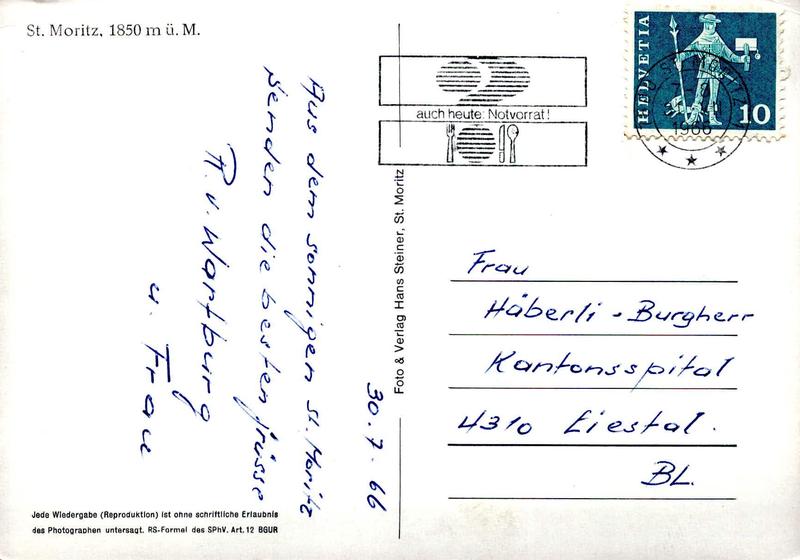 St. Moritz, 1850 m ü. M.
Aus dem sonnigen St. Moritz
senden die besten Grüsse
R. v. Wartburg
u. Frau
30.7.66
Jede Wiedergabe (Reproduktion) ist ohne schriftliche Erlaubnis
des Photographen untersagt. RS-Formel des SPhV. Art. 12 BGUR
Foto & Verlag Hans Steiner, St. Moritz
auch heute: Notvorrat!
HELVETIA
10
ST. MORITZ
1966
Frau
Häberli - Burgherr
Kantonsspital
4310 Liestal.
BL.